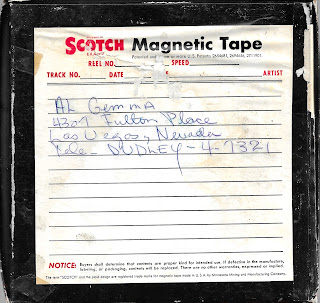 SCOTCH Magnetic Tape
REEL NO. SPEED
TRACK NO. DATE ARTIST
AL Gemma
4327 Fulton Place
Las Vegas, Nevada
Tele- DUDLEY-4-7321
NOTICE: Buyers shall determine that contents are proper kind for intended use. If defective in the manufacture,
labeling, or packaging, contents will be replaced. There are no other warranties, expressed or implied.
The term "SCOTCH" and the plaid design are registered trade marks for magnetic tape made in U.S.A. by Minnesota Mining and Manufacturing Company.